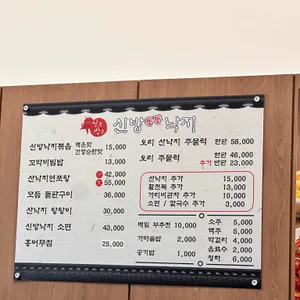 신방 낙지
신방낙지볶음 매운맛 안매운맛 15,000
꼬막비빔밥 13,000
산낙지연포탕 小 42,000
大 55,000
모듬 돌판구이 36,000
산낙지 탕탕이 30,000
신방낙지 소면 43,000
홍어무침 25,000
오리 산낙지 주물럭 한판 58,000
오리 주물럭 한판 46,000
추가 반판 23,000
산낙지 추가 15,000
활전복 추가 13,000
가리비관자 추가 10,000
소면 / 칼국수 추가 3,000
메밀 부추전 10,000
가마솥밥 2,000
공기밥 1,000
소주 5,000
맥주 5,000
막걸리 4,000
음료수 2,000
청하 6,000